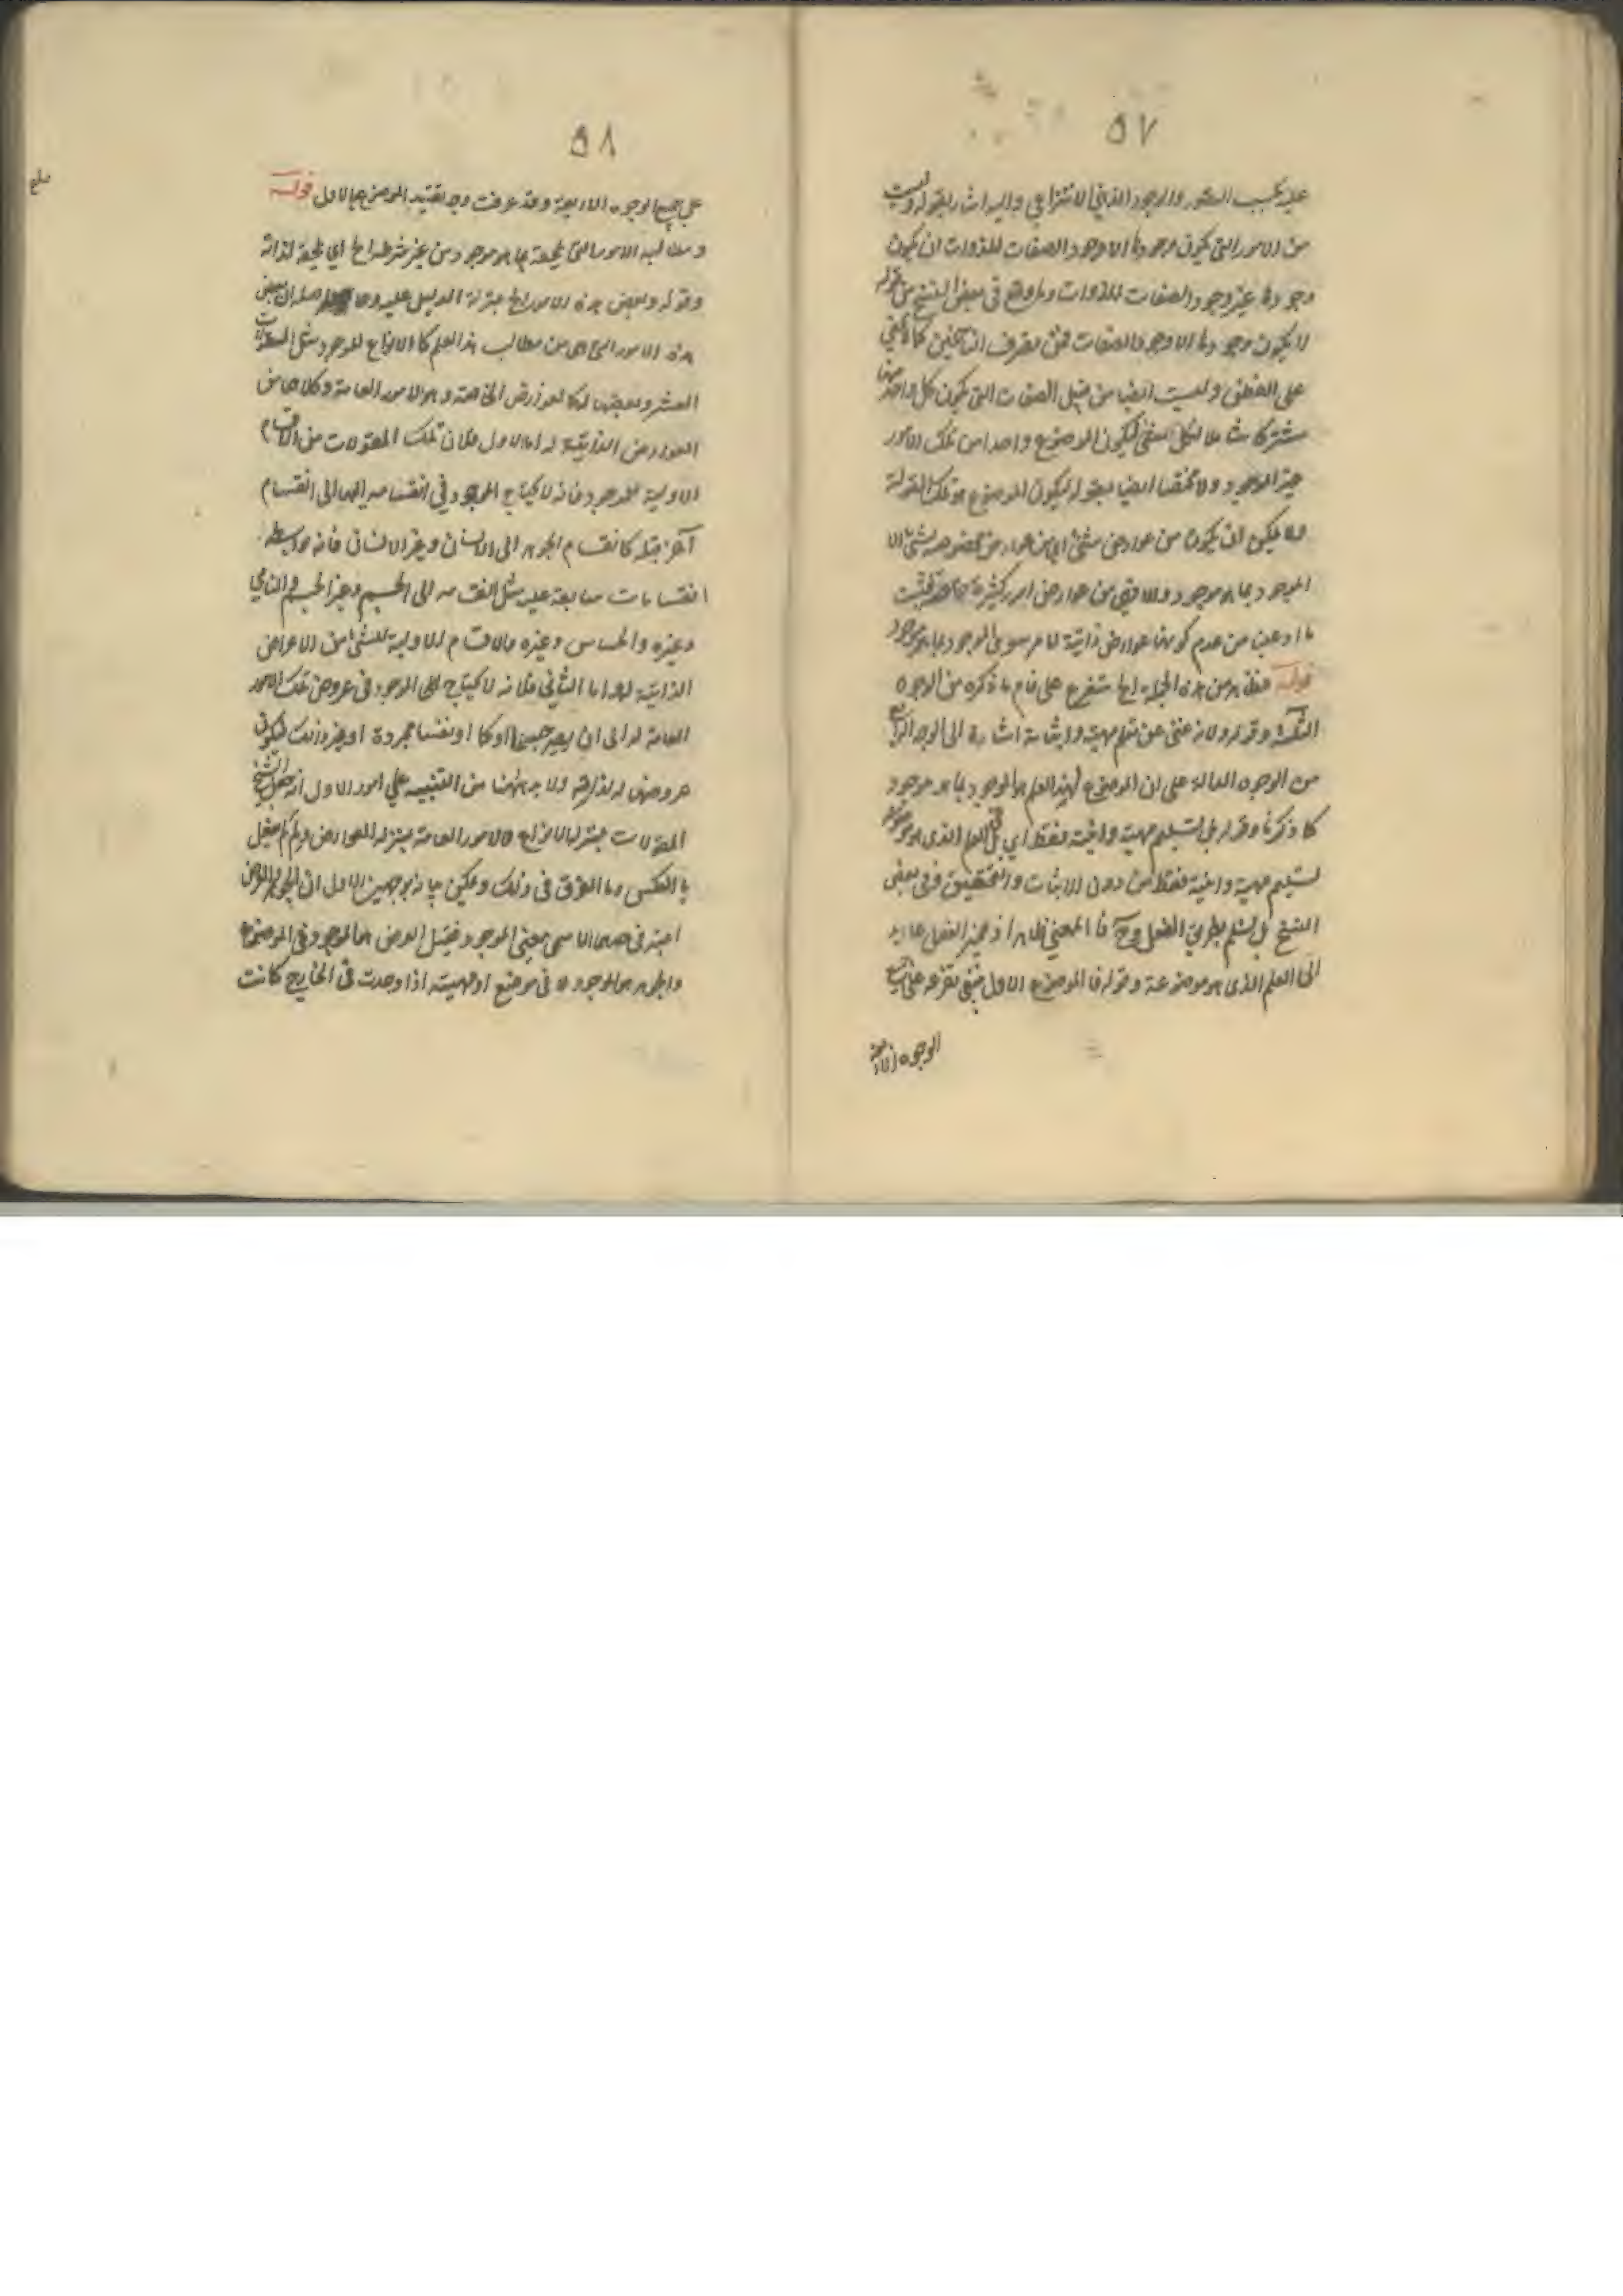 ٥٧
عليه بحسب التصور والوجود الذهني الانتزاعي واليه اشار بقوله وليست
من الامور التي يكون وجودها الا وجود الصفات للذوات ان يكون
وجودها غير وجود الصفات للذوات وما وقع في بعض النسخ من قوله
لا يكون وجودها الا وجود الصفات فمن تصرف الناسخين كما لا يخفى
على الفطن وليست ايضا من قبيل الصفات التي يكون كل واحد منها
مشتركا شاملا لكل شيء ليكون الموضوع واحدا من تلك الامور
غير الموجود ولا مختصا ايضا بمقولة ليكون الموضوع هو تلك المقولة
ولا يمكن ان يكون من عوارض شيء اي من عوارض بخصوصه بشيء الا
الموجود بما هو موجود والا فهي من عوارض امور كثيرة فثبت
ما ادعينا من عدم كونها عوارض ذاتية لامر سوى الموجود بما هو موجود
قوله فظاهر من هذه الجملة الخ متفرع على تمام ما ذكره من الوجوه
الثلثة وقوله ولانه غني عن تعلم مهيته واثباته اشارة الى الوجه الرابع
من الوجوه الدالة على ان الموضوع لهذا العلم هو الموجود بما هو موجود
كما ذكرنا وقوله بل تسليم مهيته وانيته فقط اي بل في العلم الذي هو موضوعه
تسليم مهيته وانيته فقط من دون الاثبات والتحقيق وفي بعض
النسخ بل يتسلم بطريق الفعل وح فالمعنى ظاهر اذ ضمير الفعل عايد
الى العلم الذي هو موضوعه وقوله فالموضوع الاول
الوجوه الاربعة
٥٨
على جميع الوجوه الاربعة وقد عرفت وجه تقييد الموضوع بالاول قوله
ومطالبه الامور التي تلحقه بما هو موجود من غير شرط الخ اي تلحقه لذاته
وقوله وبعض هذه الامور الخ بمنزلة الدليل عليه ان بعض
هذه الامور التي هي من مطالب هذا العلم كالانواع للموجود مثل المقولات
العشر وبعضها له كالعوارض الخاصة وهو الامور العامة وكلاهما من
العوارض الذاتية له اما الاول فلان تلك المقولات من الاقسام
الاولية للموجود فانه لا يحتاج الموجود في انقسامه اليها الى انقسام
آخر قبله كانقسام الجوهر الى الانسان وغير الانسان فانه بواسطة
انقسامات سابقة عليه مثل انقسامه الى الجسم وغير الجسم والنامي
وغيره والحساس وغيره والاقسام الاولية للشيء من الاعراض
الذاتية له واما الثاني فلانه لا يحتاج الموجود في عروض تلك الامور
العامة له الى ان يصير جسما او كما او نفسا مجردة او غير ذلك فيكون
عروضها له لذاته ولا بد ههنا من التنبيه على امور الاول انه جعل الشيخ
المقولات بمنزلة الانواع والامور العامة بمنزلة العوارض ولم لم يجعل
بالعكس وما الفرق في ذلك ويمكن بيانه بوجهين الاول ان الجوهر والعرض
اعتبر في حدهما الاسمي معنى الموجود فقيل العرض هو الموجود في الموضوع
والجوهر هو الموجود لا في موضوع او مهيته اذا وجدت في الخارج كانت